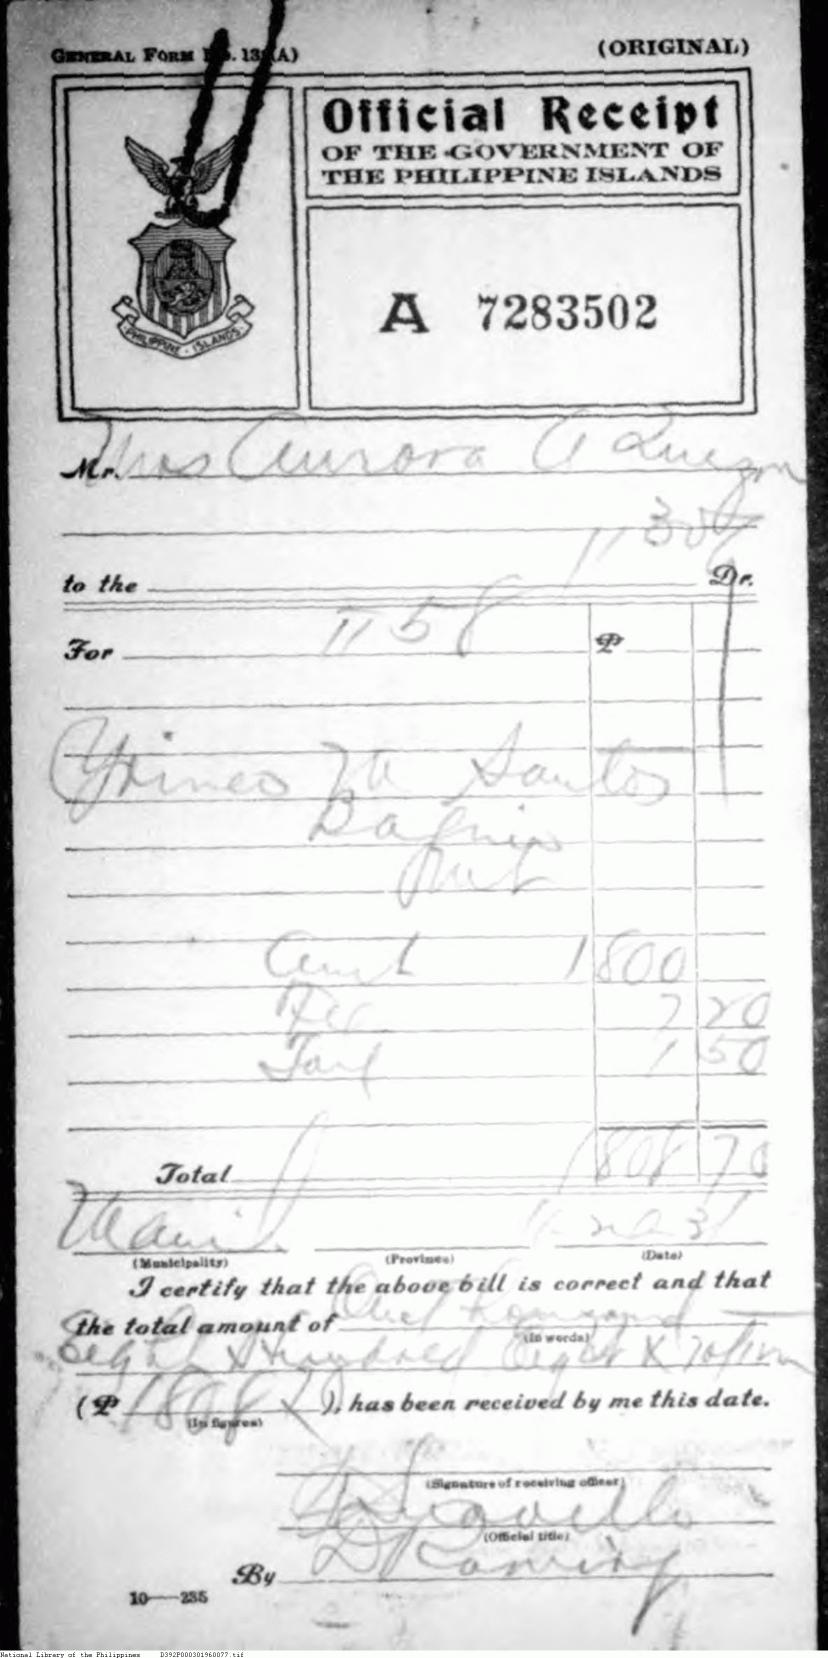 GENERAL FORM No. 13 (A) (ORIGINAL)
Official Receipt
OF THE GOVERNMENT OF
THE PHILIPPINE ISLANDS
PHILIPPINE · ISLANDS
A 7283502
Mr. Mrs Aurora A Quezon
to the Dr.
For 1158 ₱
Santos
Baguio
Amt 1800
Fee 7 20
1 50
Total 1808 70
Manila
(Municipality) (Province) (Date)
I certify that the above bill is correct and that
the total amount of One Thousand
(In words)
Eight Hundred Eight &
(₱ 1808 ), has been received by me this date.
(In figures)
(Signature of receiving officer)
(Official title)
By
10—235
National Library of the Philippines D392P000301960077.tif